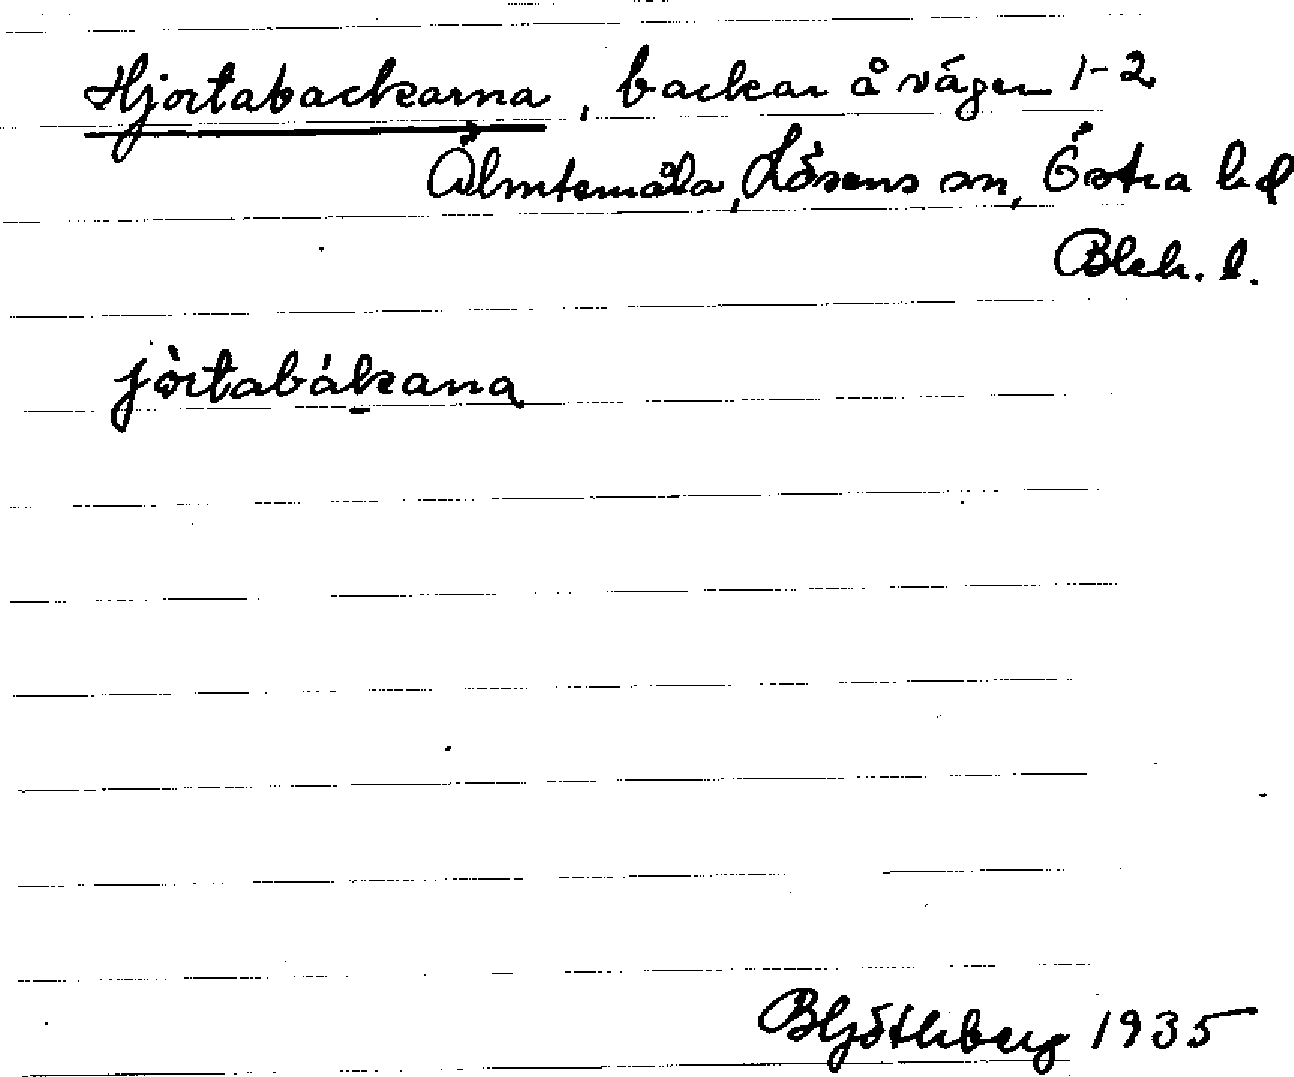 Hjortabackarna, backar å vägen 1-2
Älmtemåla, Lösens sn, Östra hd
Blek. l.
jòrtabákana
BHjöthberg 1935